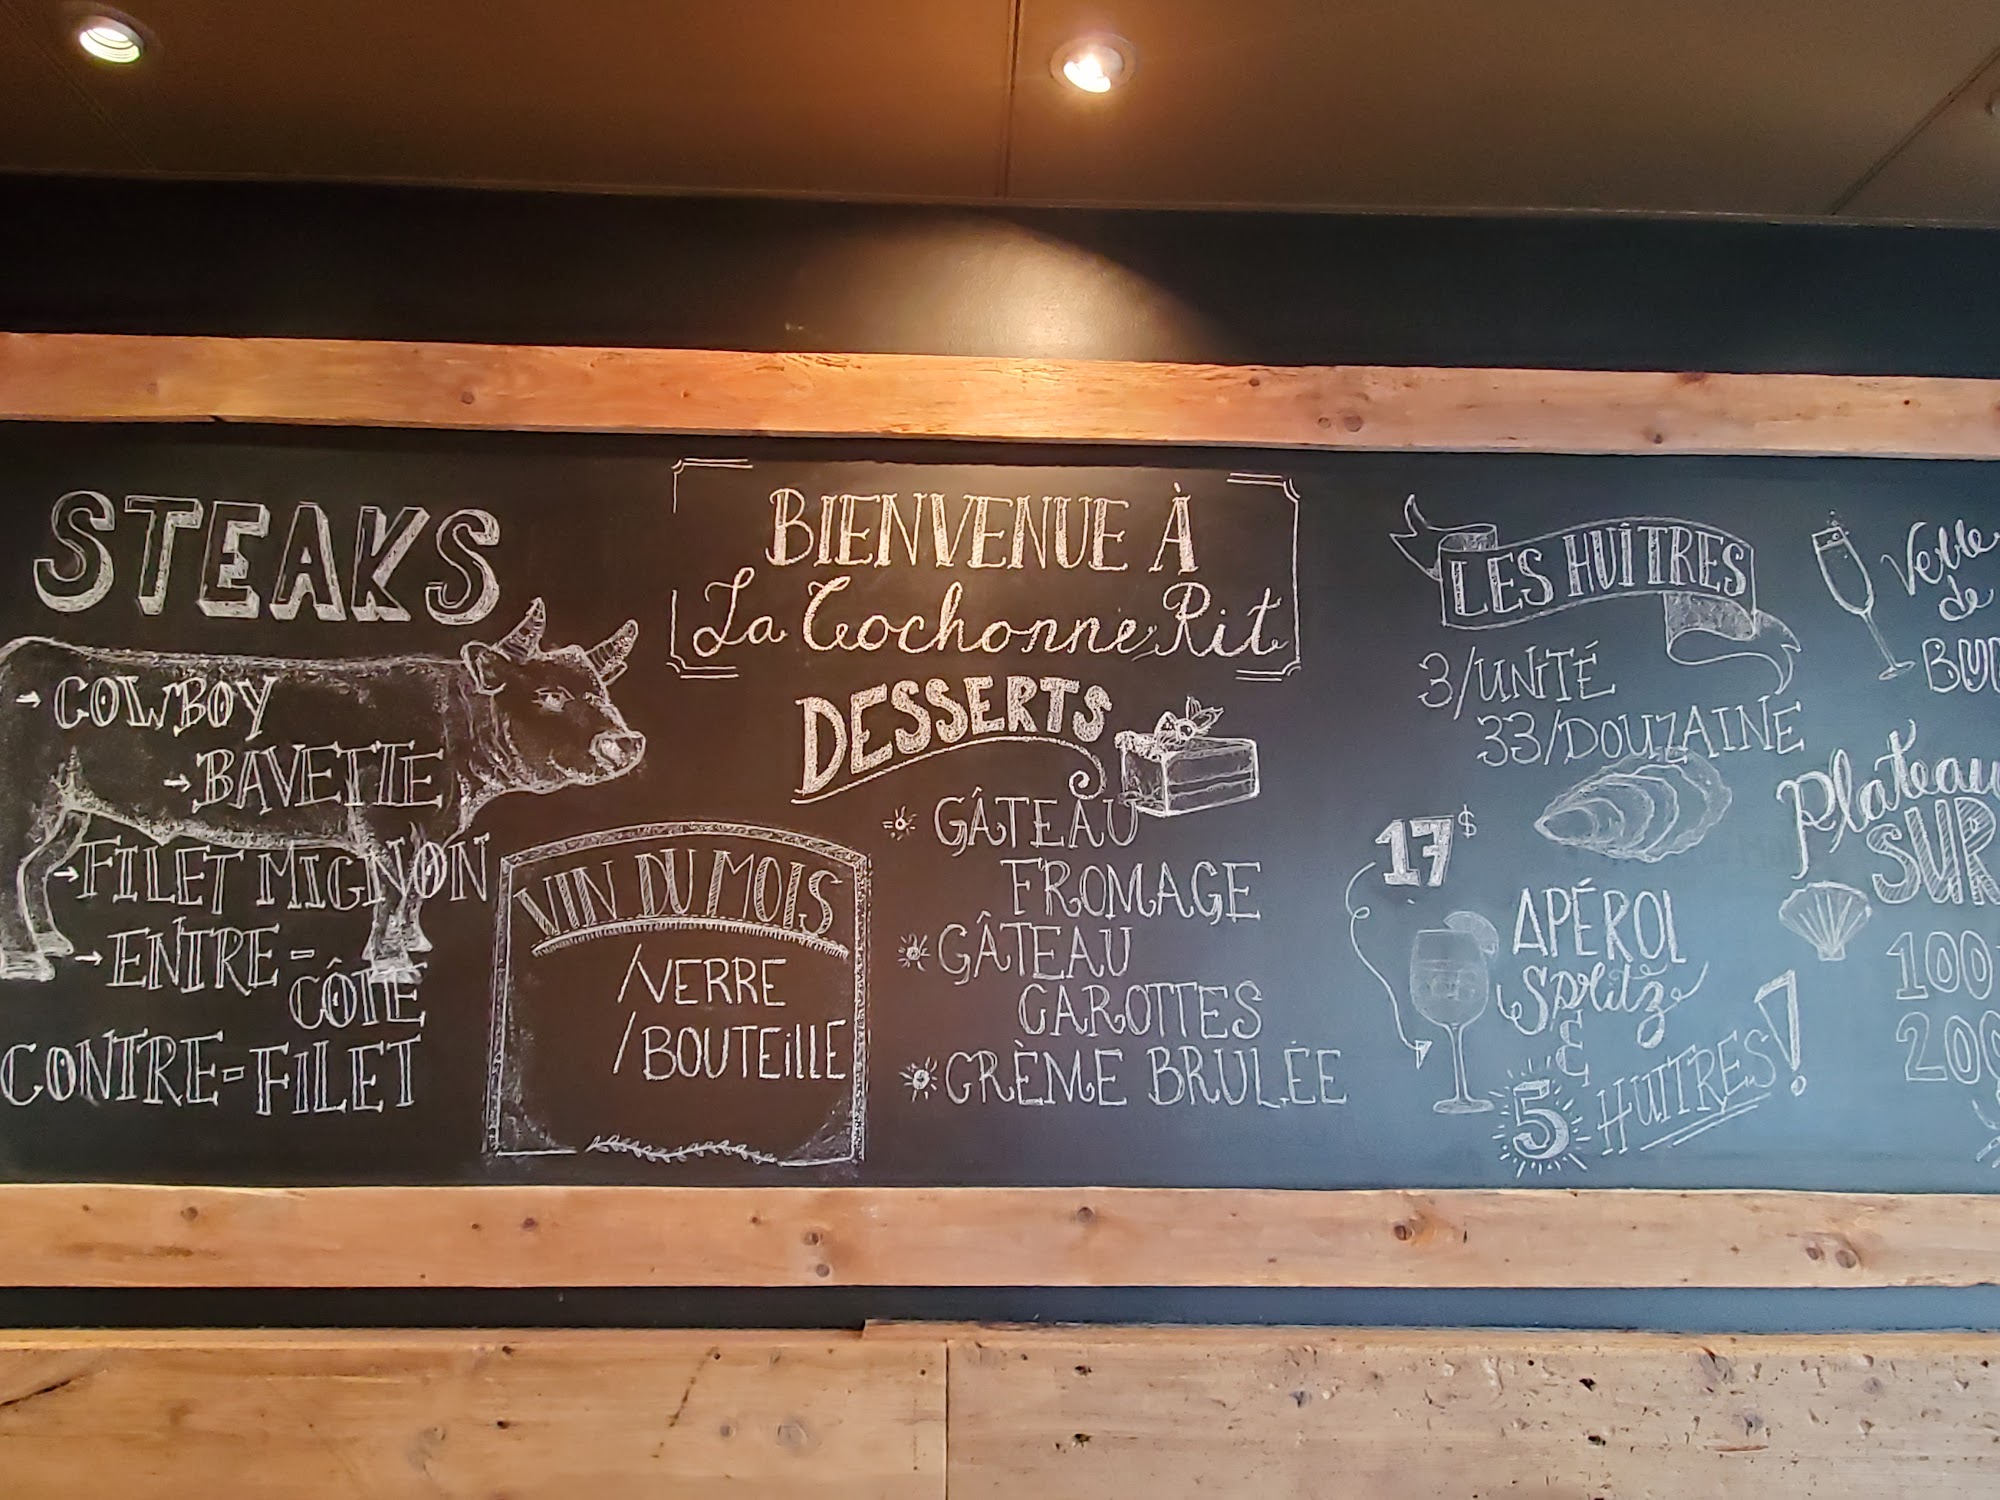 STEAKS
→ COWBOY
→ BAVETTE
→ FILET MIGNON
→ ENTRE-
CÔTE
CONTRE-FILET
BIENVENUE À
La Cochonne Rit
VIN DU MOIS
/VERRE
/BOUTEILLE
DESSERTS
GÂTEAU
FROMAGE
GÂTEAU
CAROTTES
CRÈME BRULÉE
LES HUÎTRES
3/UNITÉ
33/DOUZAINE
17$
APÉROL
Spritz
&
5 HUITRES!
Verre
de
Plateau
SUR
100